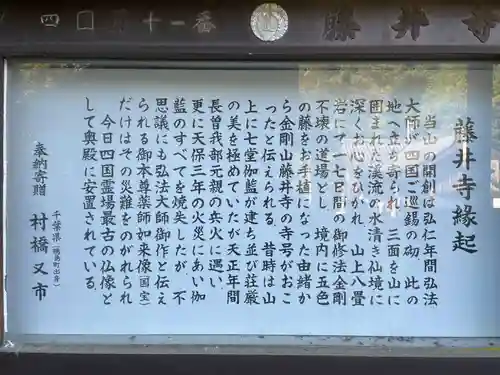 四国第十一番
藤井寺
藤井寺縁起
当山の開創は弘仁年間弘法
大師が四国ご巡錫の砌 此の
地へ立ち寄られ 三面を山に
囲まれた渓流の水清き仙境に
深くお心をひかれ 山上八畳
岩にて一七日間の御修法金剛
不壊の道場とし 境内に五色
の藤をお手植になった由緒か
ら金剛山藤井寺の寺号がおこ
ったと伝えられる 昔時は山
上に七堂伽藍が建ち並び荘厳
の美を極めていたが天正年間
長曽我部元親の兵火に遇い、
更に天保三年の火災にあい伽
藍のすべてを焼失したが、不
思議にも弘法大師御作と伝え
られる御本尊薬師如来像(国宝)
だけはその災難をのがれられ
今日四国霊場最古の仏像と
して奥殿に安置されている。
奉納寄贈 千葉県 村橋又市